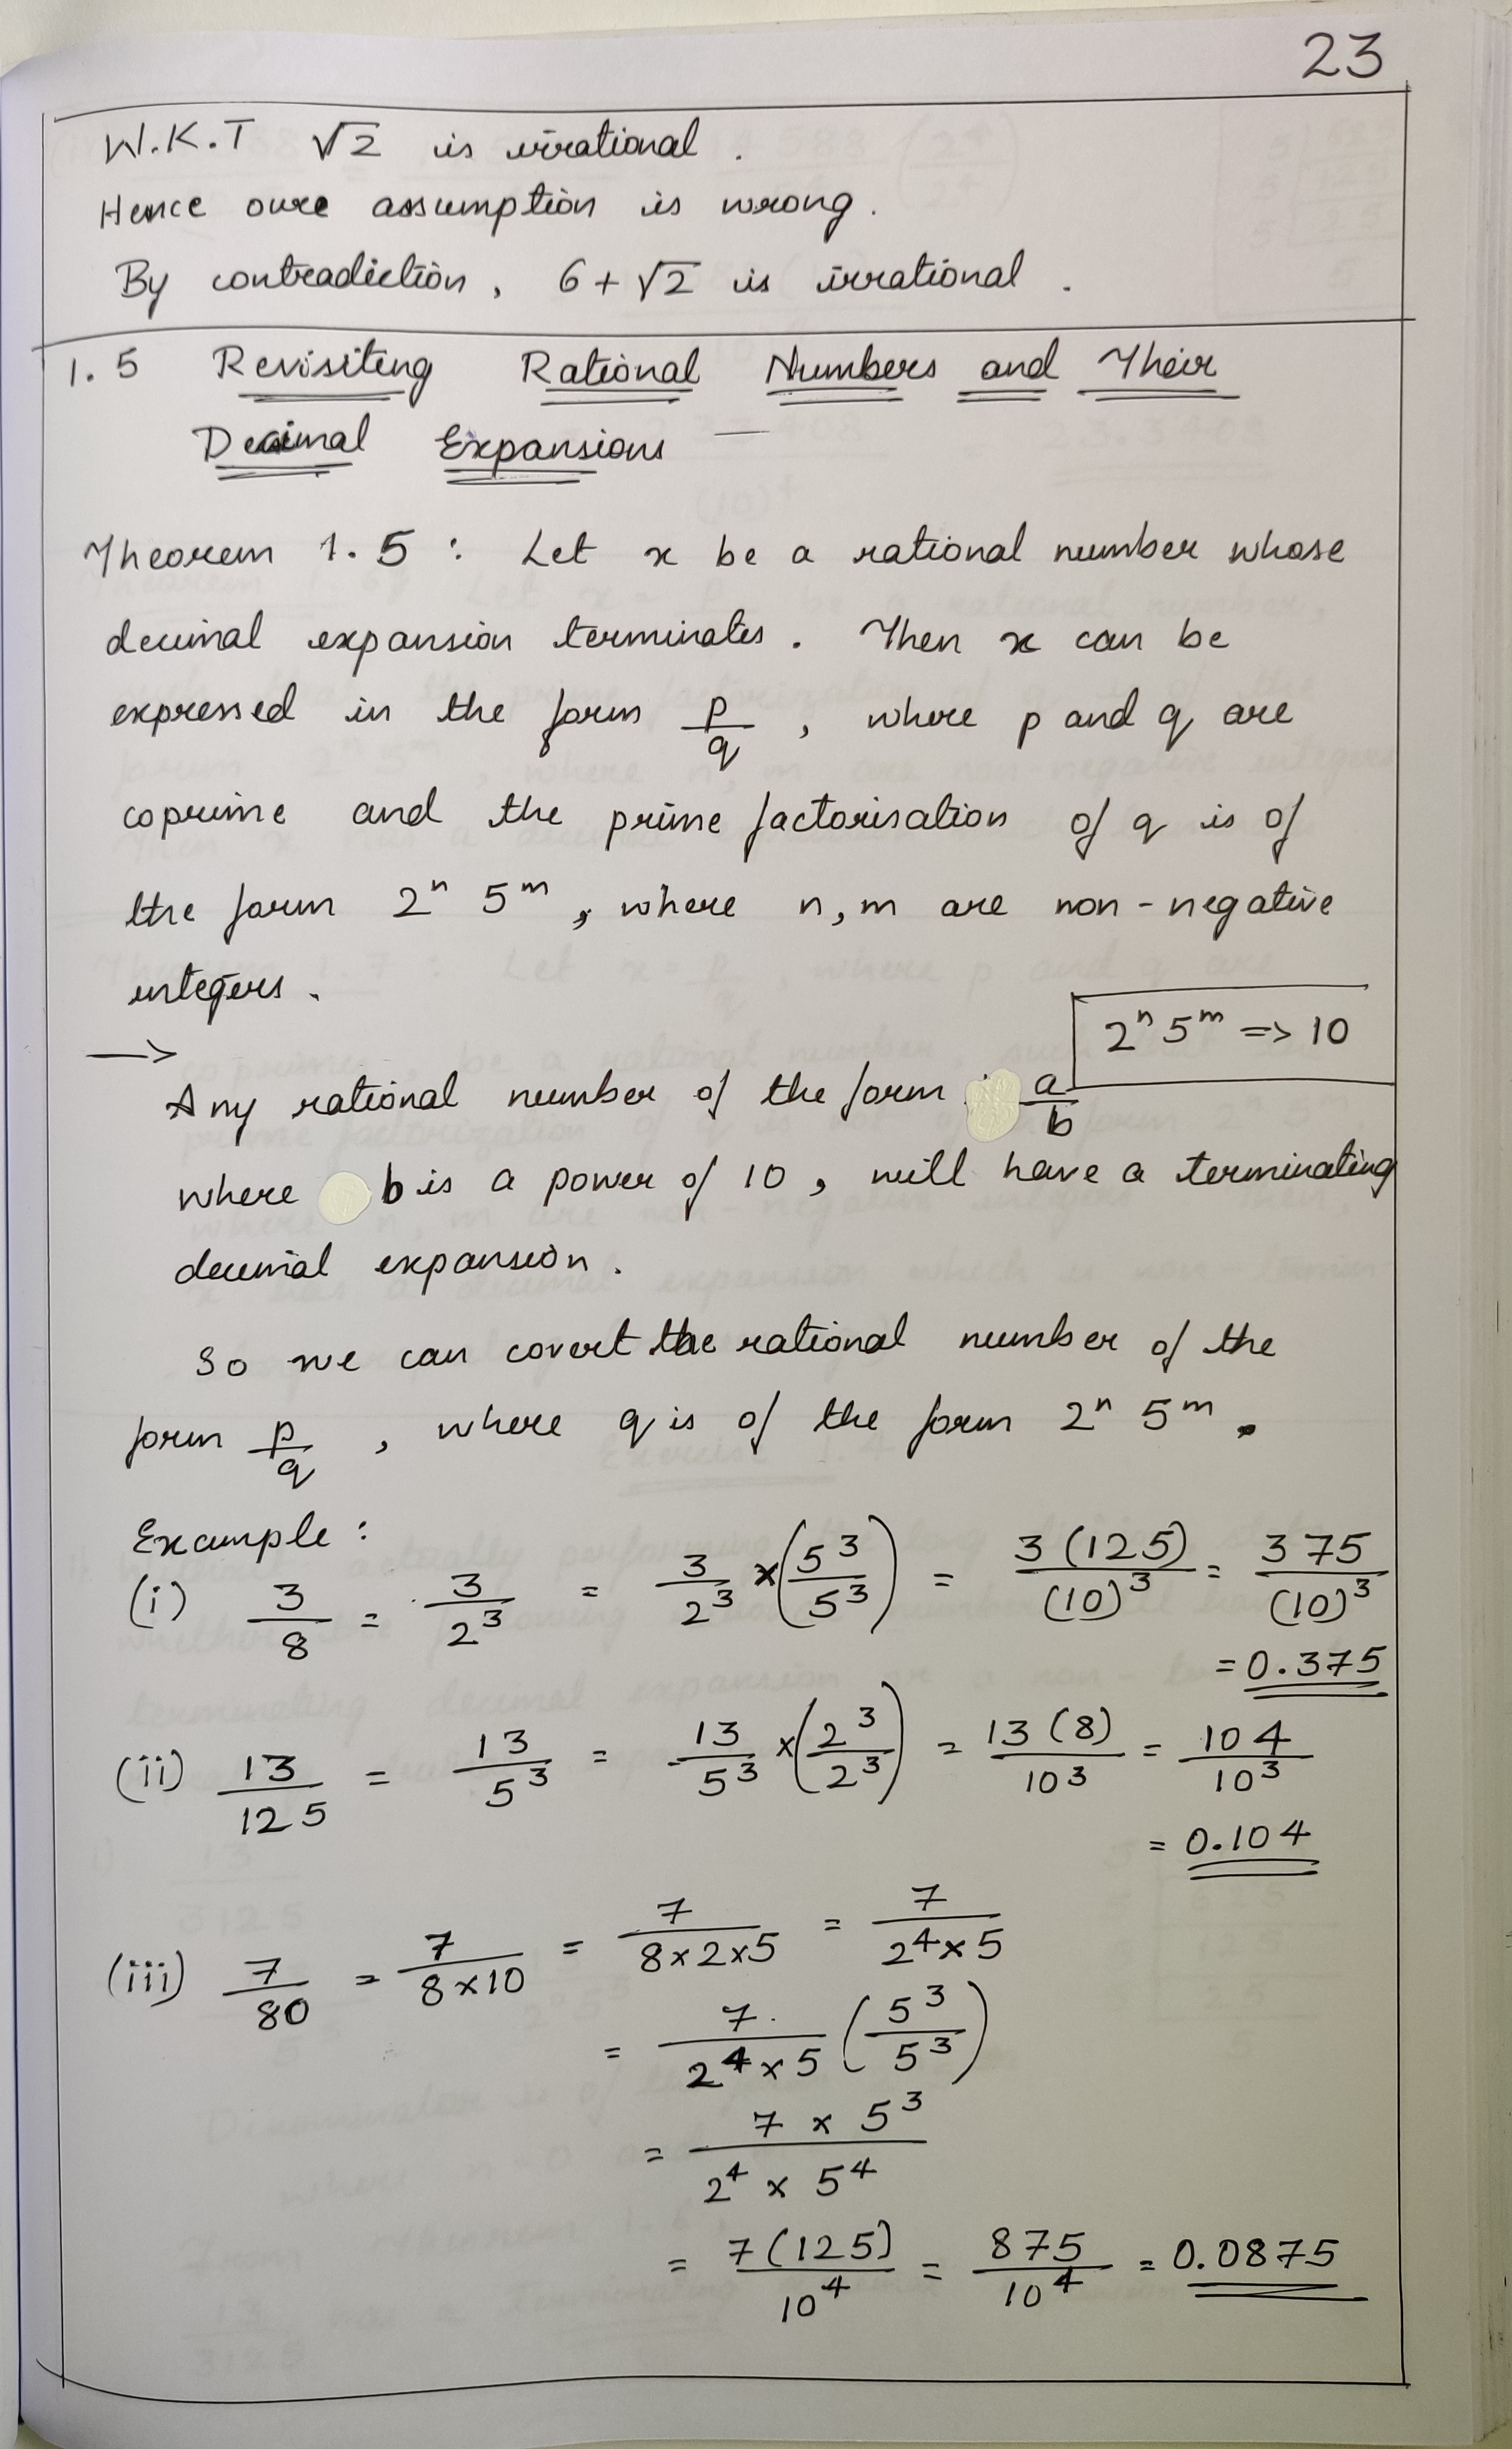 23
W.K.T √2 is irrational.
Hence oure assumption is wrong.
By contradiction, 6+√2 is irrational.
1.5 Revisiting Rational Numbers and Their
Decimal Expansions —
Theorem 1.5 : Let x be a rational number whose
decimal expansion terminates. Then x can be
expressed in the form p/q, where p and q are
coprime and the prime factorisation of q is of
the form 2ⁿ 5ᵐ, where n, m are non-negative
integers.
2ⁿ 5ᵐ => 10
→
Any rational number of the form a/b
where b is a power of 10, will have a terminating
decimal expansion.
So we can covert the rational number of the
form p/q, where q is of the form 2ⁿ 5ᵐ.
Example :
(i) 3/8 = 3/2³ = 3/2³ × (5³/5³) = 3(125)/(10)³ = 375/(10)³
= 0.375
(ii) 13/125 = 13/5³ = 13/5³ × (2³/2³) = 13(8)/10³ = 104/10³
= 0.104
(iii) 7/80 = 7/8×10 = 7/8×2×5 = 7/2⁴×5
= 7/2⁴×5 (5³/5³)
= 7 × 5³/2⁴ × 5⁴
= 7(125)/10⁴ = 875/10⁴ = 0.0875